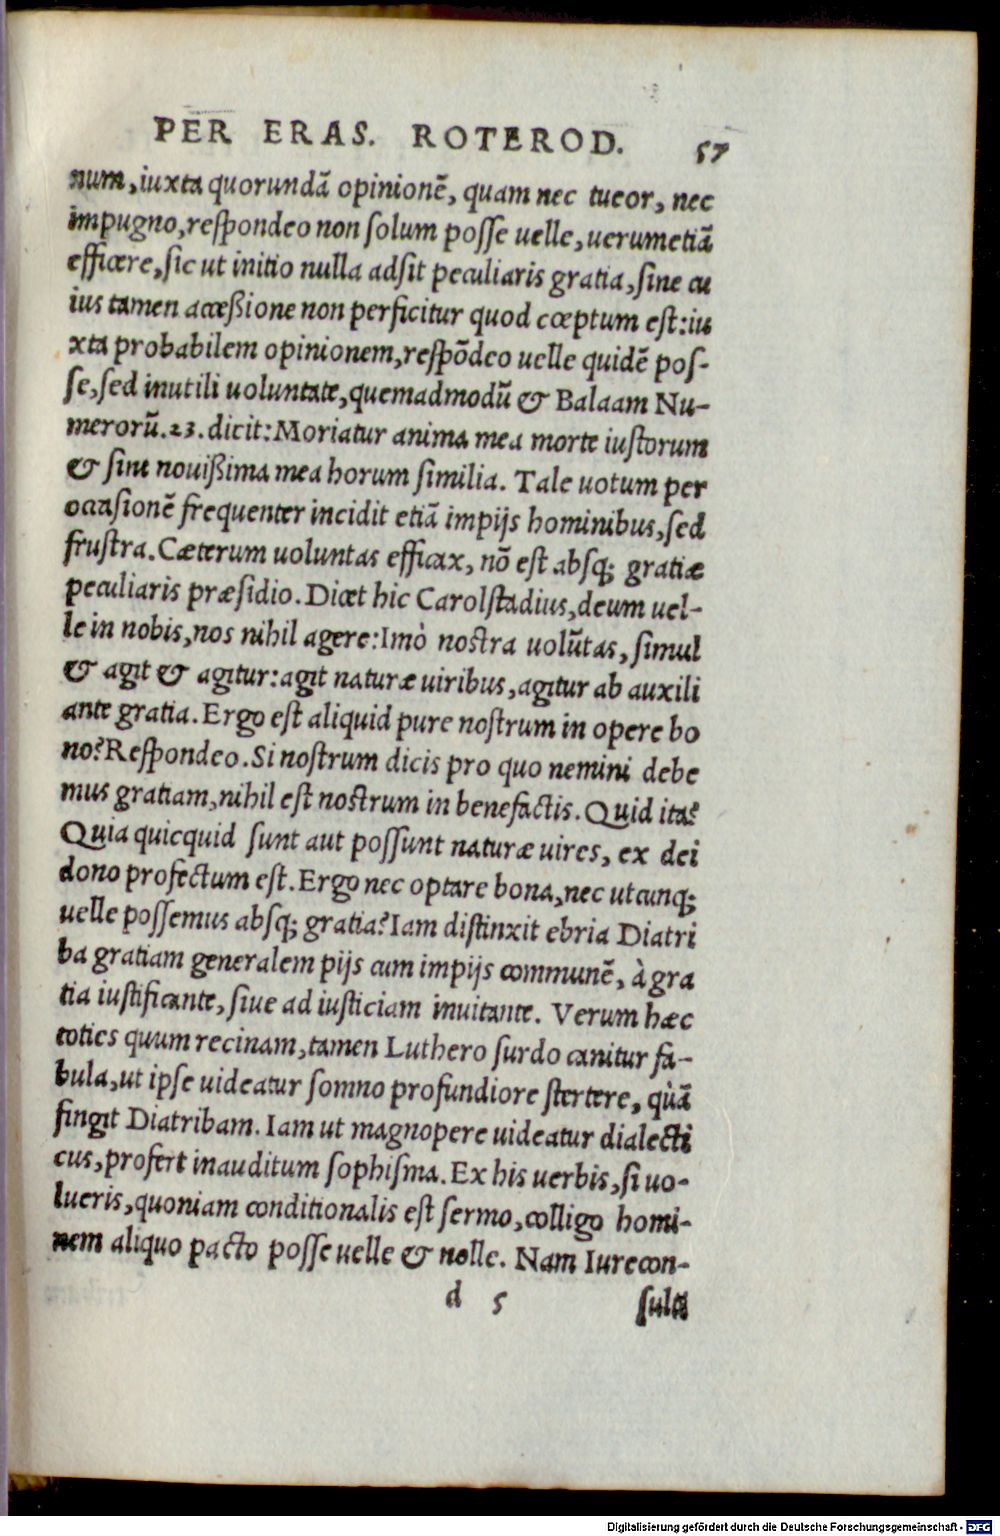 PER ERAS. ROTEROD. 57
num, iuxta quorundā opinionē, quam nec tueor, nec
impugno, reſpondeo non ſolum poſſe uelle, uerumetiā
efficere, ſic ut initio nulla adſit peculiaris gratia, ſine cu
ius tamen acceßione non perficitur quod cœptum eſt: iu
xta probabilem opinionem, reſpōdeo uelle quidē poſ-
ſe, ſed inutili uoluntate, quemadmodū & Balaam Nu-
merorū. 23. dicit: Moriatur anima mea morte iuſtorum
& ſint nouißima mea horum ſimilia. Tale uotum per
occaſionē frequenter incidit etiā impijs hominibus, ſed
fruſtra. Cæterum uoluntas efficax, nō eſt abſq; gratiæ
peculiaris præſidio. Dicet hic Carolſtadius, deum uel-
le in nobis, nos nihil agere: Imò noſtra uolūtas, ſimul
& agit & agitur: agit naturæ uiribus, agitur ab auxili
ante gratia. Ergo eſt aliquid pure noſtrum in opere bo
no? Reſpondeo. Si noſtrum dicis pro quo nemini debe
mus gratiam, nihil eſt noſtrum in benefactis. Quid ita?
Quia quicquid ſunt aut poſſunt naturæ uires, ex dei
dono profectum eſt. Ergo nec optare bona, nec utcunq;
uelle poſſemus abſq; gratia? Iam diſtinxit ebria Diatri
ba gratiam generalem pijs cum impijs communē, à gra
tia iuſtificante, ſiue ad iuſticiam inuitante. Verum hæc
toties quum recinam, tamen Luthero ſurdo canitur fa-
bula, ut ipſe uideatur ſomno profundiore ſtertere, quā̀
fingit Diatribam. Iam ut magnopere uideatur dialecti
cus, profert inauditum ſophiſma. Ex his uerbis, ſi uo-
lueris, quoniam conditionalis eſt ſermo, colligo homi-
nem aliquo pacto poſſe uelle & nolle. Nam Iurecon-
d 5 ſulti
Digitalisierung gefördert durch die Deutsche Forschungsgemeinschaft - DFG